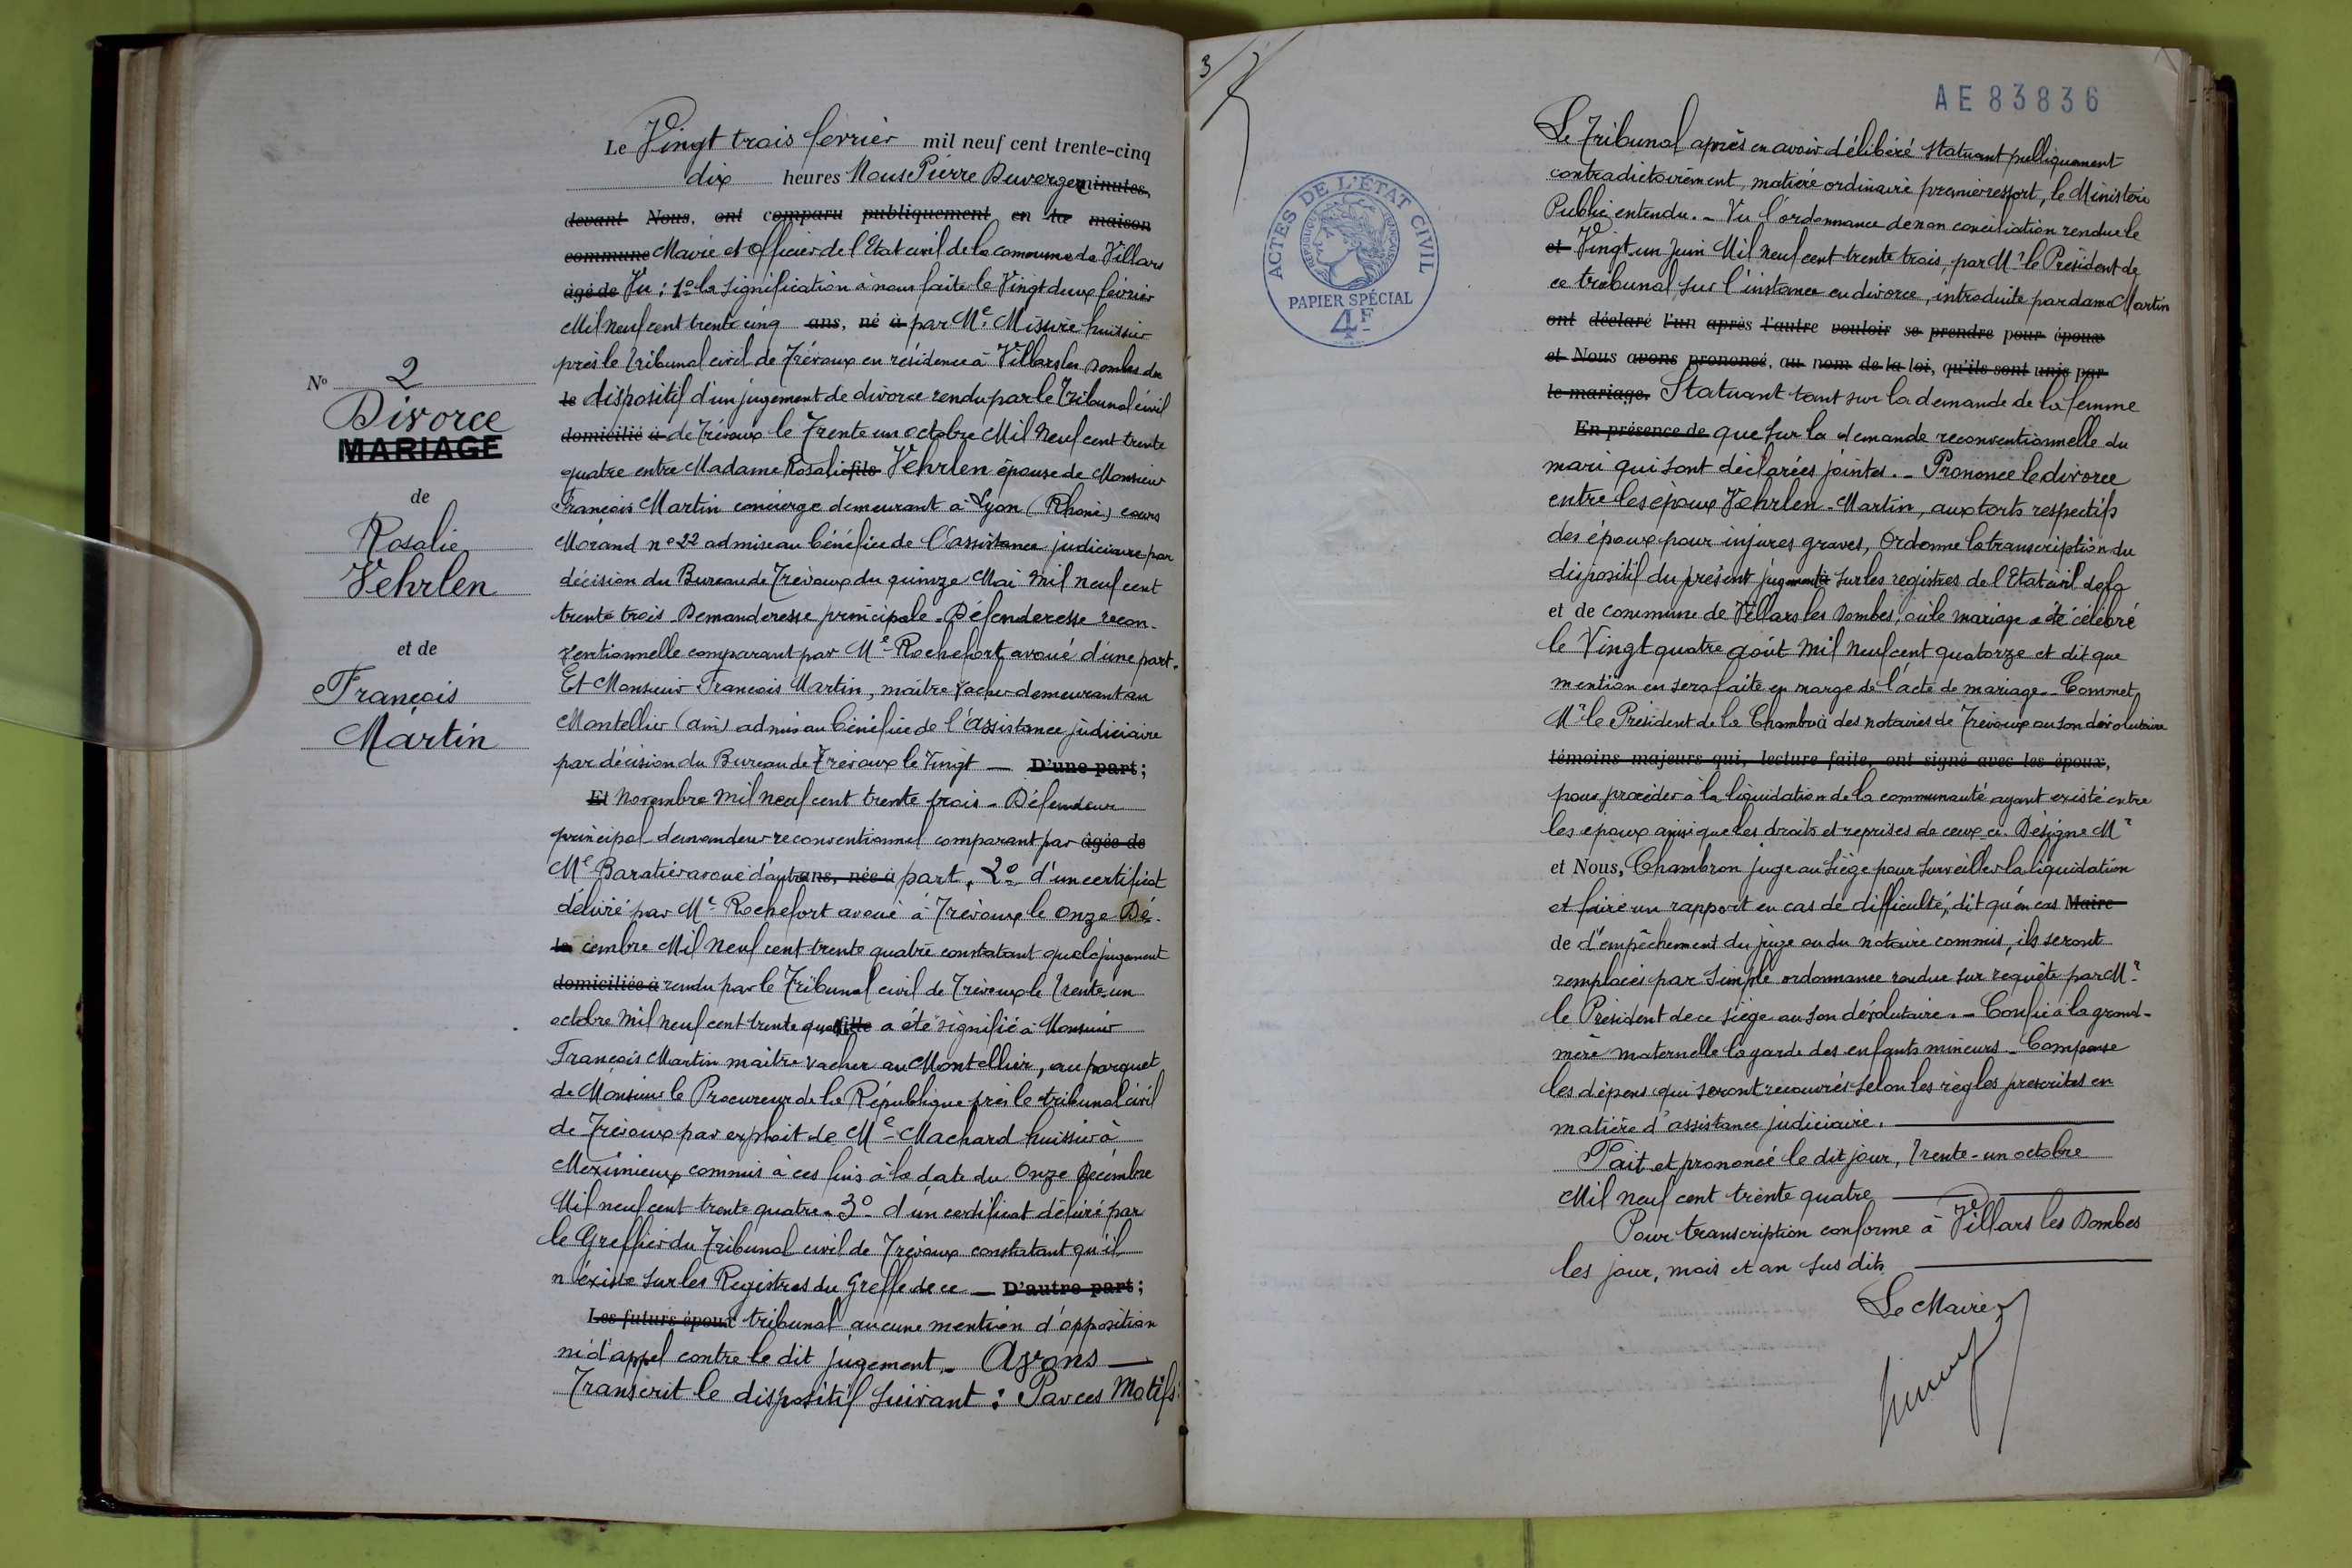 Le Vingt trois fevrier mil neuf cent trente-cinq
dix heures Nous Pierre Duverger minutes,
devant Nous, ont comparu publiquement en la maison
commune Maire et Officier de l'Etat civil de la commune de Villars
âgé de Vu : 1º la signification à nous faite le Vingt deux février
Mil neuf cent trente cinq ans, né à par Me Missire huissier
près le tribunal civil de Trévoux en résidence à Villars les Dombes du
le dispositif d'un jugement de divorce rendu par le Tribunal civil
domicilié à de Trévoux le Trente un octobre Mil Neuf cent trente
quatre entre Madame Rosalie fils Vehrlen épouse de Monsieur
François Martin concierge demeurant à Lyon (Rhône) cours
Morand nº 22 admise au bénéfice de l'assistance judiciaire par
décision du Bureau de Trévoux du quinze Mai Mil neuf cent
trente trois. Demanderesse principale. Défenderesse recon-
ventionnelle comparant par Me Rochefort avoué d'une part.
Et Monsieur François Martin, maître vacher demeurant au
Montellier (ain) admis au bénéfice de l'assistance judiciaire
par décision du Bureau de Trévoux le Vingt — D'une part ;
Et Novembre Mil neuf cent trente trois - Défendeur
principal demandeur reconventionnel comparant par âgée de
Me Baratier avoué d'autre ans, née à part. 2º d'un certificat
délivré par Me Rochefort avoué à Trévoux le Onze Dé-
la cembre Mil Neuf cent trente quatre constatant que le jugement
domiciliée à rendu par le Tribunal civil de Trévoux le trente-un
octobre Mil neuf cent trente quatre fille a été signifié à Monsieur
François Martin maître vacher au Montellier, au parquet
de Monsieur le Procureur de la République près le tribunal civil
de Trévoux par exploit de Me Machard huissier à
Meximieux commis à ces fins à la date du Onze Décembre
Mil neuf cent trente quatre. 3º d'un certificat délivré par
le Greffier du Tribunal civil de Trévoux constatant qu'il
n'existe sur les Registres du Greffe de ce — D'autre part ;
Les futurs époux tribunal aucune mention d'opposition
ni d'appel contre le dit jugement. - Avons —
Transcrit le dispositif suivant : Par ces Motifs :
Nº 2
Divorce
MARIAGE
de
Rosalie
Vehrlen
et de
François
Martin
3
ACTES DE L'ÉTAT CIVIL
RÉPUBLIQUE FRANÇAISE
PAPIER SPÉCIAL
4F
AE 83836
Le Tribunal après en avoir délibéré statuant publiquement
contradictoirement, matière ordinaire premier ressort, le Ministère
Public entendu. - Vu l'ordonnance de non conciliation rendue le
et Vingt-un Juin Mil neuf cent trente trois, par Mr le Président de
ce tribunal, sur l'instance en divorce, introduite par dame Martin
ont déclaré l'un après l'autre vouloir se prendre pour époux
et Nous avons prononcé, au nom de la loi, qu'ils sont unis par
le mariage. Statuant tant sur la demande de la femme
En présence de que sur la demande reconventionnelle du
mari qui sont déclarées jointes. - Prononce le divorce
entre les époux Vehrlen - Martin, aux torts respectifs
des époux pour injures graves, Ordonne la transcription du
dispositif du présent jugement à sur les registres de l'Etat civil de la
et de commune de Villars les Dombes, où le mariage a été célébré
le Vingt quatre août Mil Neuf cent quatorze et dit que
mention en sera faite en marge de l'acte de mariage. - Commet
Mr le Président de la Chambre à des notaires de Trévoux ou son dévolutaire
témoins majeurs qui, lecture faite, ont signé avec les époux,
pour procéder à la liquidation de la communauté ayant existé entre
les époux ainsi que les droits et reprises de ceux ci. Désigne Mr
et Nous, Chambron juge au siège pour surveiller la liquidation
et faire un rapport en cas de difficulté, dit qu'en cas Maire
de d'empêchement du juge ou du notaire commis, ils seront
remplacés par simple ordonnance rendue sur requête par Mr
le Président de ce siège ou son dévolutaire. - Confie à la grand-
mère maternelle la garde des enfants mineurs - Compense
les dépens qui seront recouvrés selon les règles prescrites en
matière d'assistance judiciaire.
Fait et prononcé le dit jour, trente-un octobre
Mil neuf cent trente quatre
Pour transcription conforme à Villars les Dombes
les jour, mois et an sus dits
Le Maire